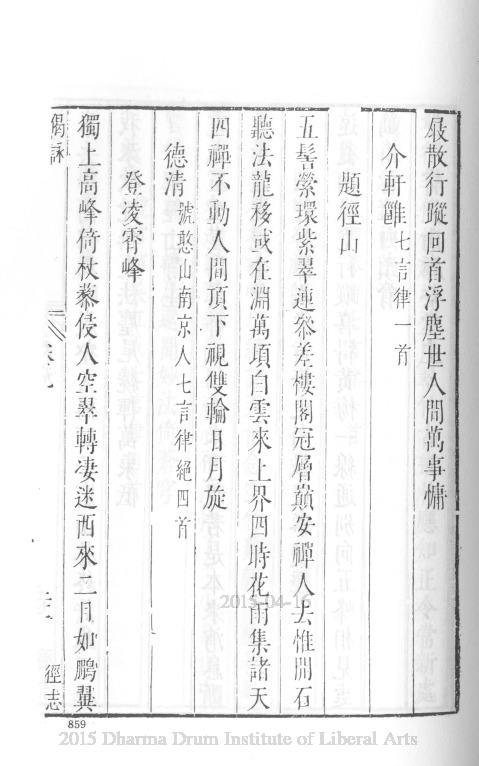 屐散行蹤回首浮塵世人間萬事慵
介軒雝七言律一首
題徑山
五髻縈環紫翠連叅差樓閣冠層巔安禪人去惟閒石
聽法龍移或在淵萬頃白雲來上界四時花雨集諸天
四禪不動人間頂下視雙輪日月旋
德清號憨山南京人七言律絕四首
登凌霄峰
獨上高峰倚杖藜侵人空翠轉凄迷西來二目如鵬翼
偈詠
徑志
859
2015-04-16
2015 Dharma Drum Institute of Liberal Arts